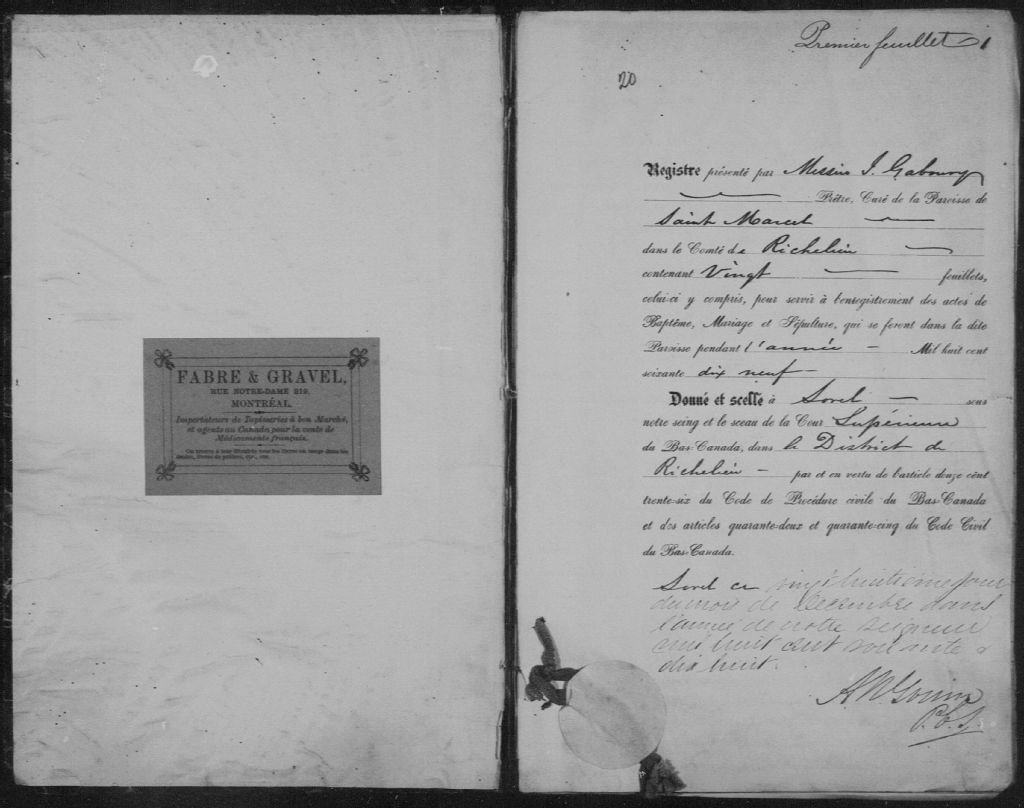 FABRE & GRAVEL,
RUE NOTRE-DAME 219,
MONTRÉAL.
Importateurs de Tapisseries à bon Marché,
et agents au Canada pour la vente de
Médicaments français.
On trouve à leur librairie tous les livres en usage dans les
écoles, livres de prières, etc., etc.
Premier feuillet 1
20
Registre présenté par Messire J. Gaboury
Prêtre, Curé de la Paroisse de
Saint Marcel
dans le Comté de Richelieu
contenant Vingt feuillets,
celui-ci y compris, pour servir à l'enregistrement des actes de
Baptême, Mariage et Sépulture, qui se feront dans la dite
Paroisse pendant l'année Mil huit cent
soixante dix neuf
Donné et scellé à Sorel sous
notre seing et le sceau de la Cour Supérieure
du Bas-Canada, dans le District de
Richelieu par et en vertu de l'article douze cent
trente-six du Code de Procédure civile du Bas-Canada
et des articles quarante-deux et quarante-cinq du Code Civil
du Bas-Canada.
Sorel ce vingt huitieme jour
du mois de Decembre dans
l'année de notre seigneur
mil huit cent soixante &
dix huit.
A N Gouin
P.C.S.